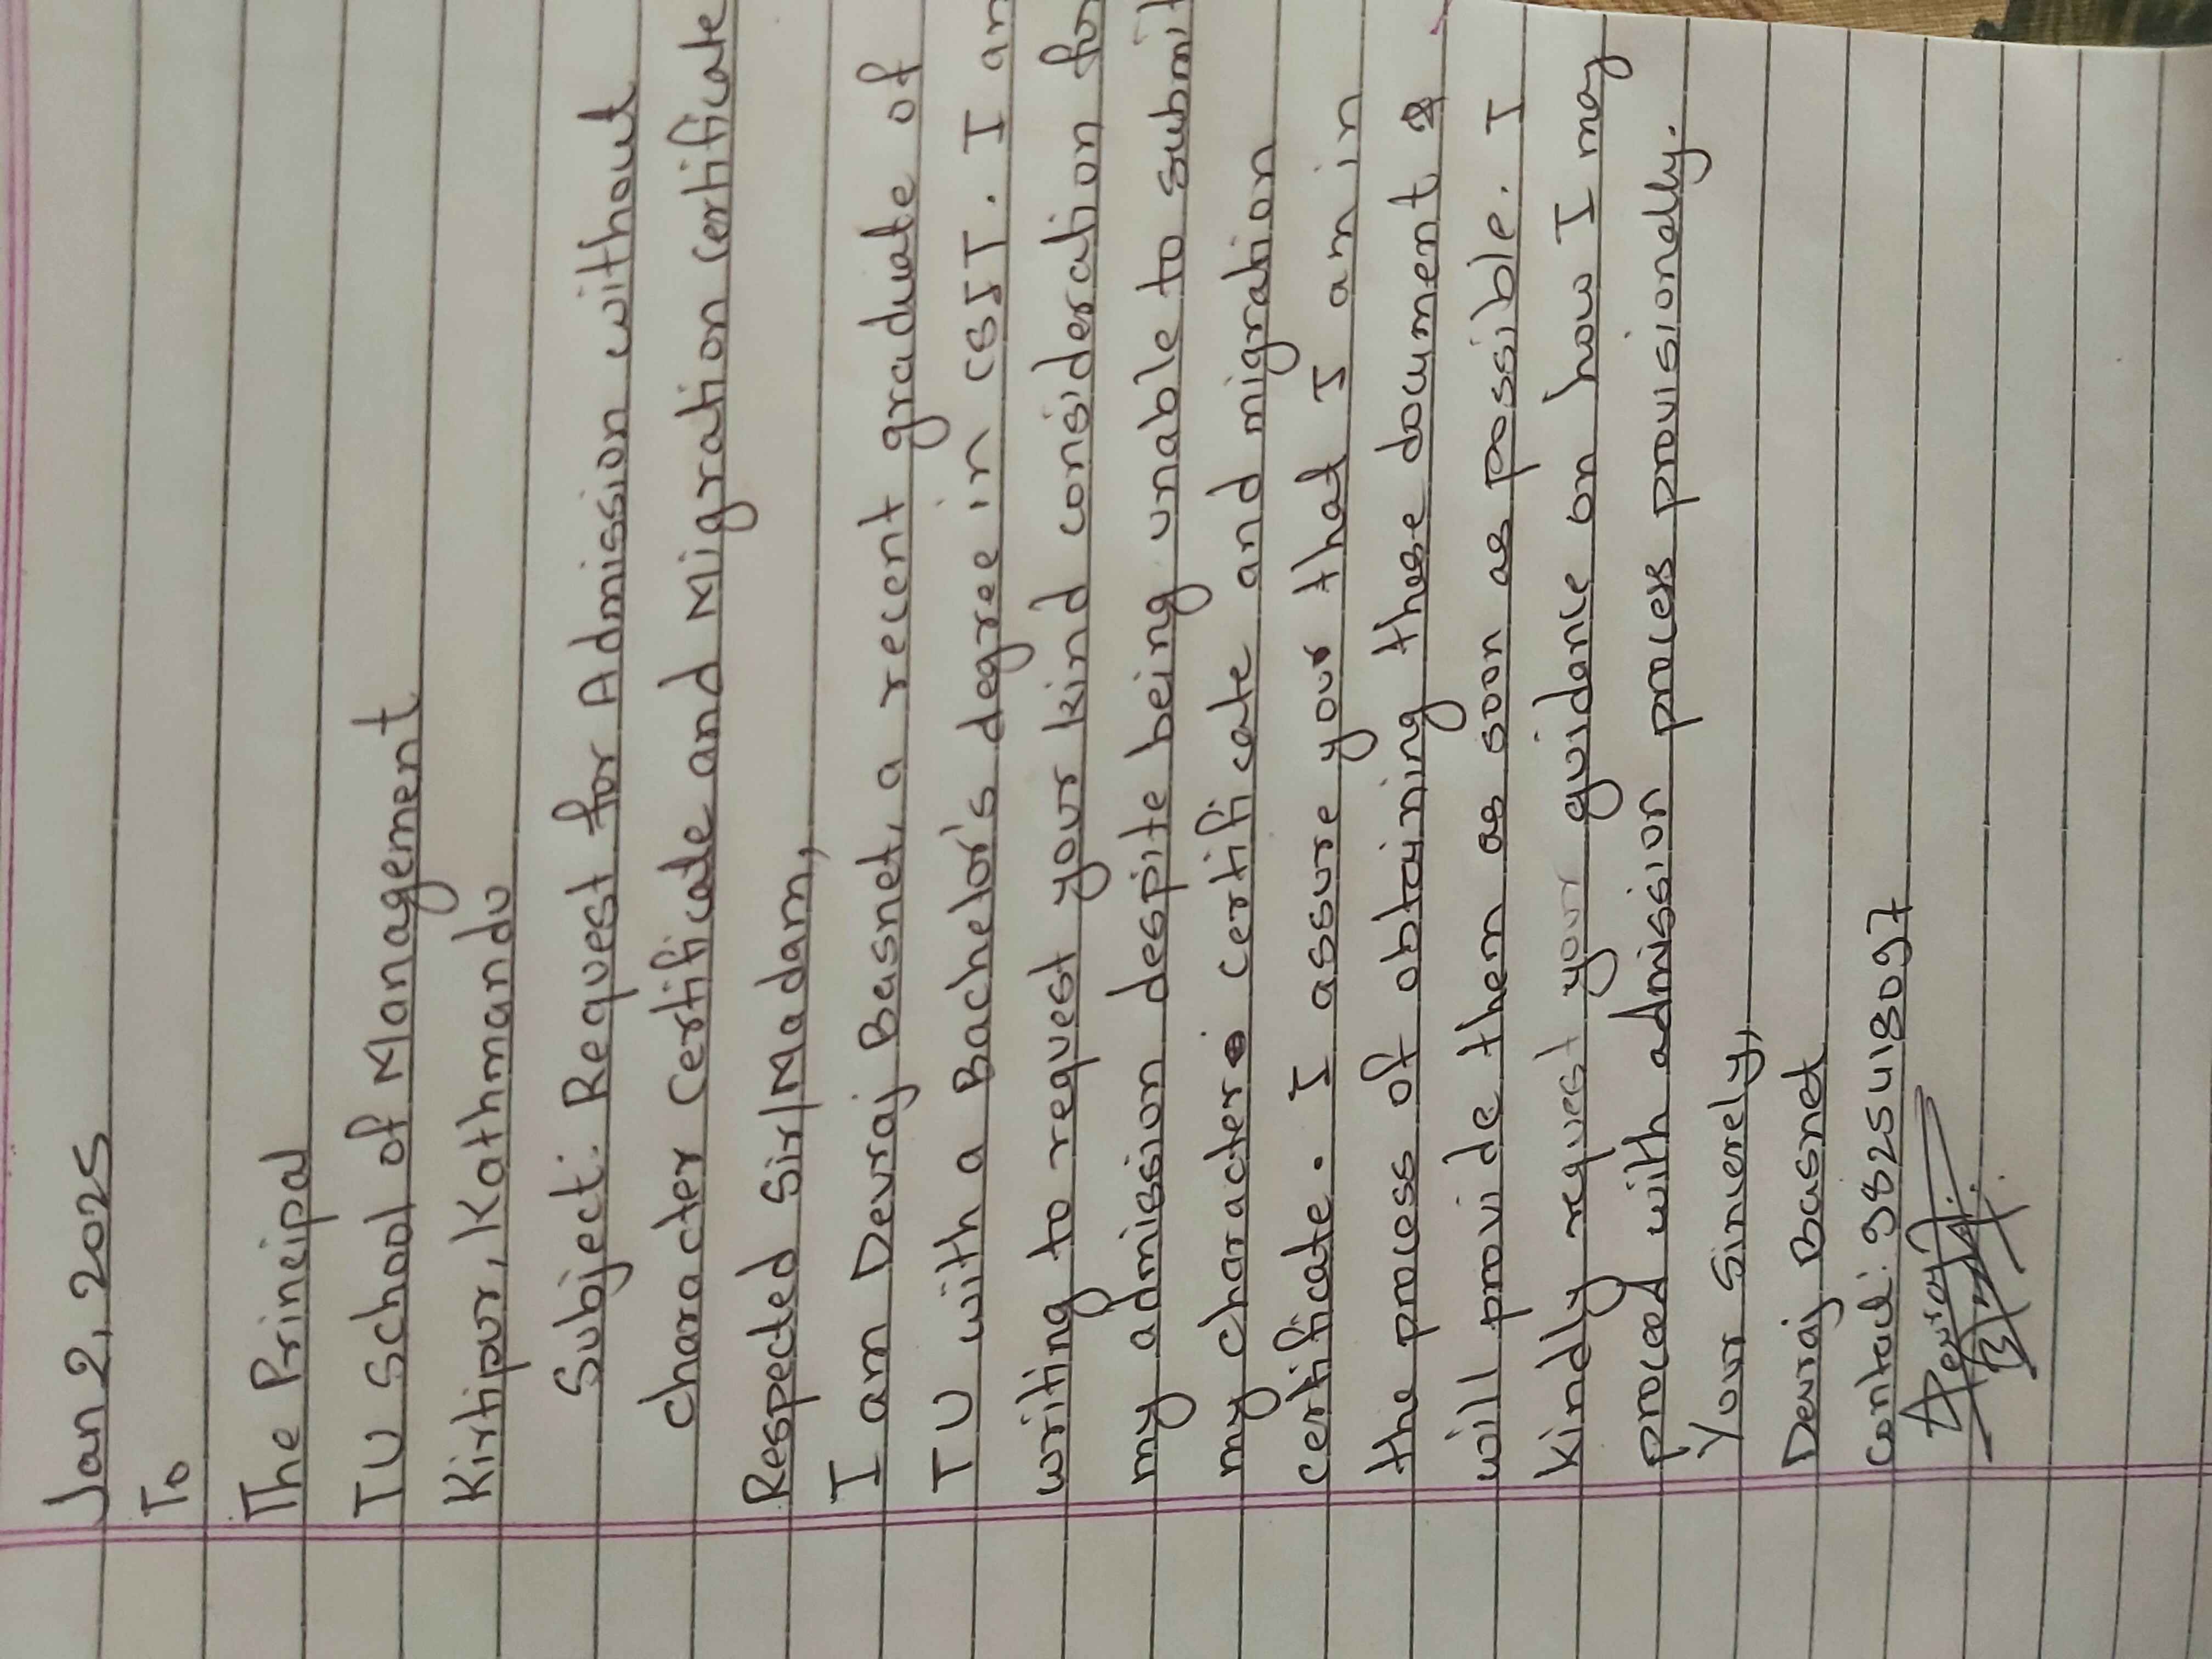 Jan 2, 2025
To
The Principal
TU School of Management
Kirtipur, Kathmandu
Subject: Request for Admission without
character Certificate and Migration certificate
Respected Sir/Madam,
I am Devraj Basnet, a recent graduate of
TU with a Bachelor's degree in CSIT. I am
writing to request your kind consideration for
my admission despite being unable to submit
my character certificate and migration
certificate. I assure your that I am in
the process of obtaining these document &
will provide them as soon as possible. I
Kindly request your guidance on how I may
proceed with admission process provisionally.
Your Sincerely,
Devraj Basnet
Contact: 9825418097
Devraj